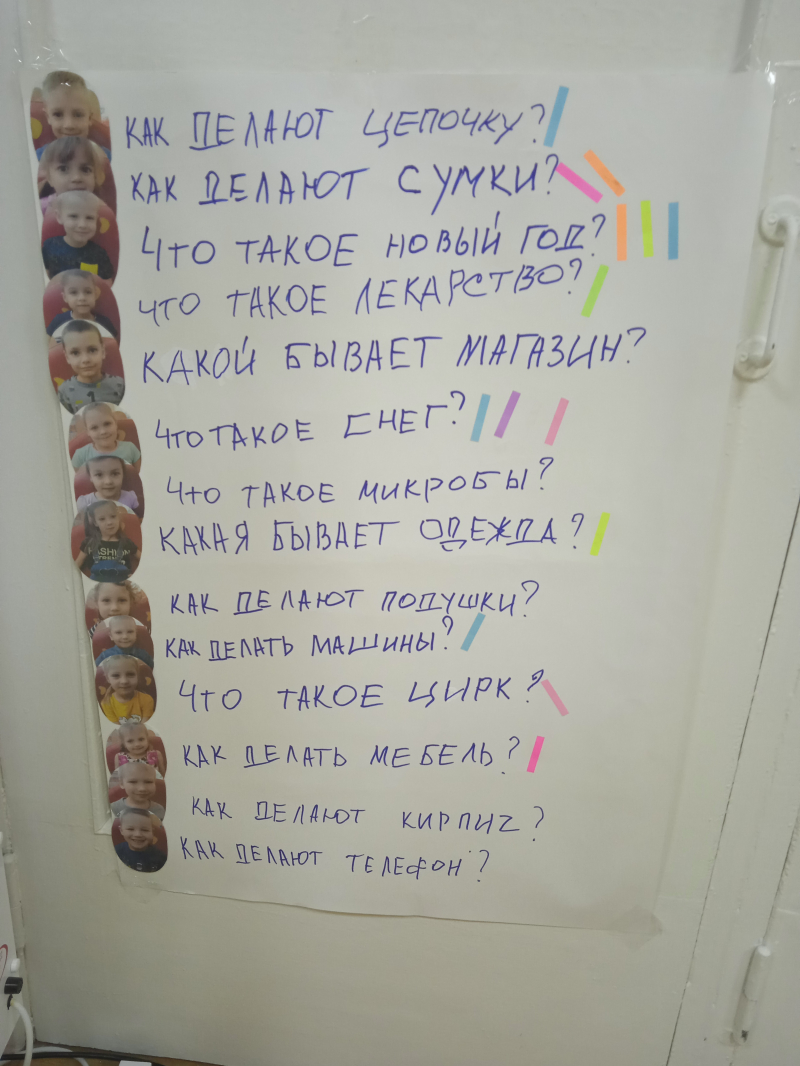 КАК ДЕЛАЮТ ЦЕПОЧКУ?
КАК ДЕЛАЮТ СУМКИ?
ЧТО ТАКОЕ НОВЫЙ ГОД?
ЧТО ТАКОЕ ЛЕКАРСТВО?
КАКОЙ БЫВАЕТ МАГАЗИН?
ЧТО ТАКОЕ СНЕГ?
ЧТО ТАКОЕ МИКРОБЫ?
КАКАЯ БЫВАЕТ ОДЕЖДА?
КАК ДЕЛАЮТ ПОДУШКИ?
КАК ДЕЛАТЬ МАШИНЫ?
ЧТО ТАКОЕ ЦИРК?
КАК ДЕЛАТЬ МЕБЕЛЬ?
КАК ДЕЛАЮТ КИРПИЧ?
КАК ДЕЛАЮТ ТЕЛЕФОН?